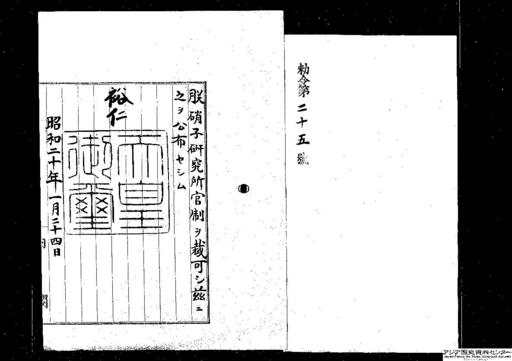 勅令第二十五號
朕硝子研究所官制ヲ裁可シ茲ニ
之ヲ公布セシム
裕仁
天皇御璽
昭和二十年一月二十四日
内閣
アジア歴史資料センター